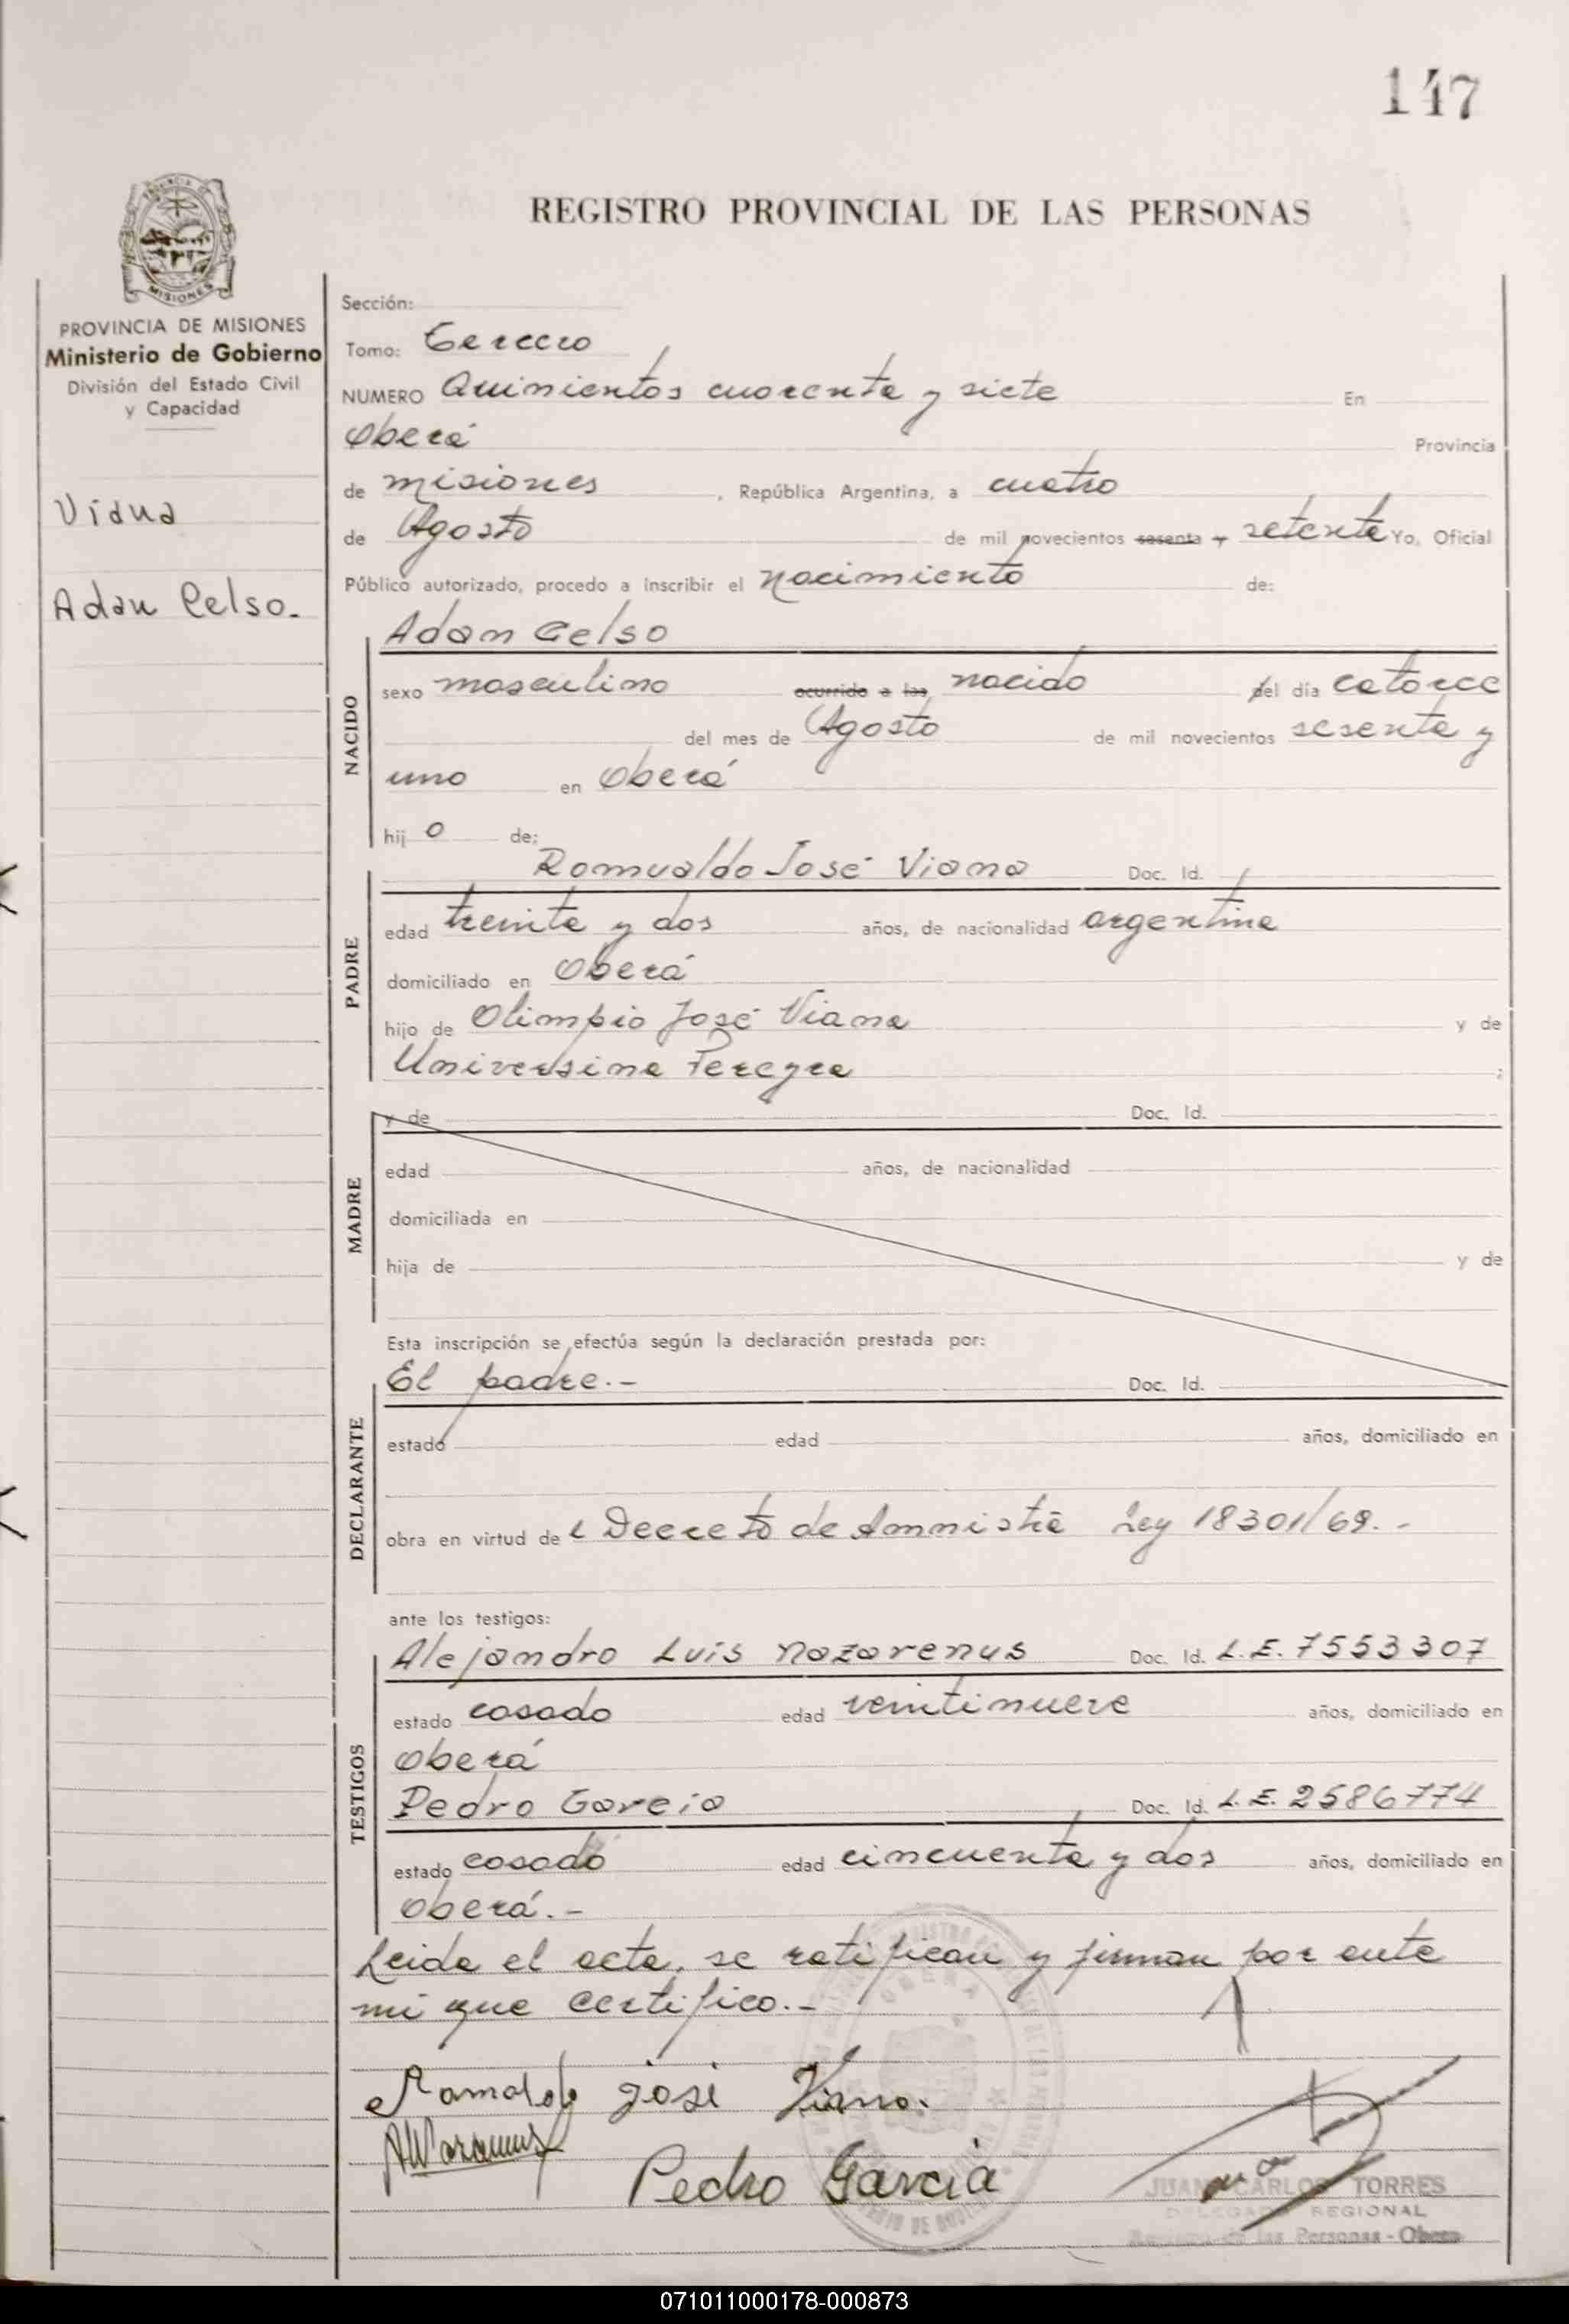 147
REGISTRO PROVINCIAL DE LAS PERSONAS
PROVINCIA DE
MISIONES
PROVINCIA DE MISIONES
Ministerio de Gobierno
División del Estado Civil
y Capacidad
Viana
Adan Celso.
Sección:
Tomo: Tercero
NUMERO Quinientos cuarenta y siete En
Oberá Provincia
de Misiones, República Argentina, a cuatro
de Agosto de mil novecientos sesenta y setenta Yo, Oficial
Público autorizado, procedo a inscribir el nacimiento de:
Adan Celso
NACIDO
sexo masculino ocurrido a las nacido del día catorce
del mes de Agosto de mil novecientos sesenta y
uno en Oberá
hijo de:
Romualdo José Viana Doc. Id.
PADRE
edad treinta y dos años, de nacionalidad argentina
domiciliado en Oberá
hijo de Olimpio José Viana y de
Universina Pereyra ;
MADRE
y de Doc. Id.
edad años, de nacionalidad
domiciliada en
hija de y de
Esta inscripción se efectúa según la declaración prestada por:
DECLARANTE
El padre.- Doc. Id.
estado edad años, domiciliado en
obra en virtud del Decreto de Amnistía Ley 18301/69.-
ante los testigos:
TESTIGOS
Alejandro Luis Nazarenus Doc. Id. L.E. 7553307
estado casado edad veintinueve años, domiciliado en
Oberá
Pedro Garcia Doc. Id. L.E. 2586774
estado casado edad cincuenta y dos años, domiciliado en
Oberá.-
Leida el acta, se ratifican y firman por ante
mi que certifico.-
Romaldo josé Viana.
Pedro Garcia
JUAN CARLOS TORRES
DELEGADO REGIONAL
Registro de las Personas - Obera
071011000178-000873